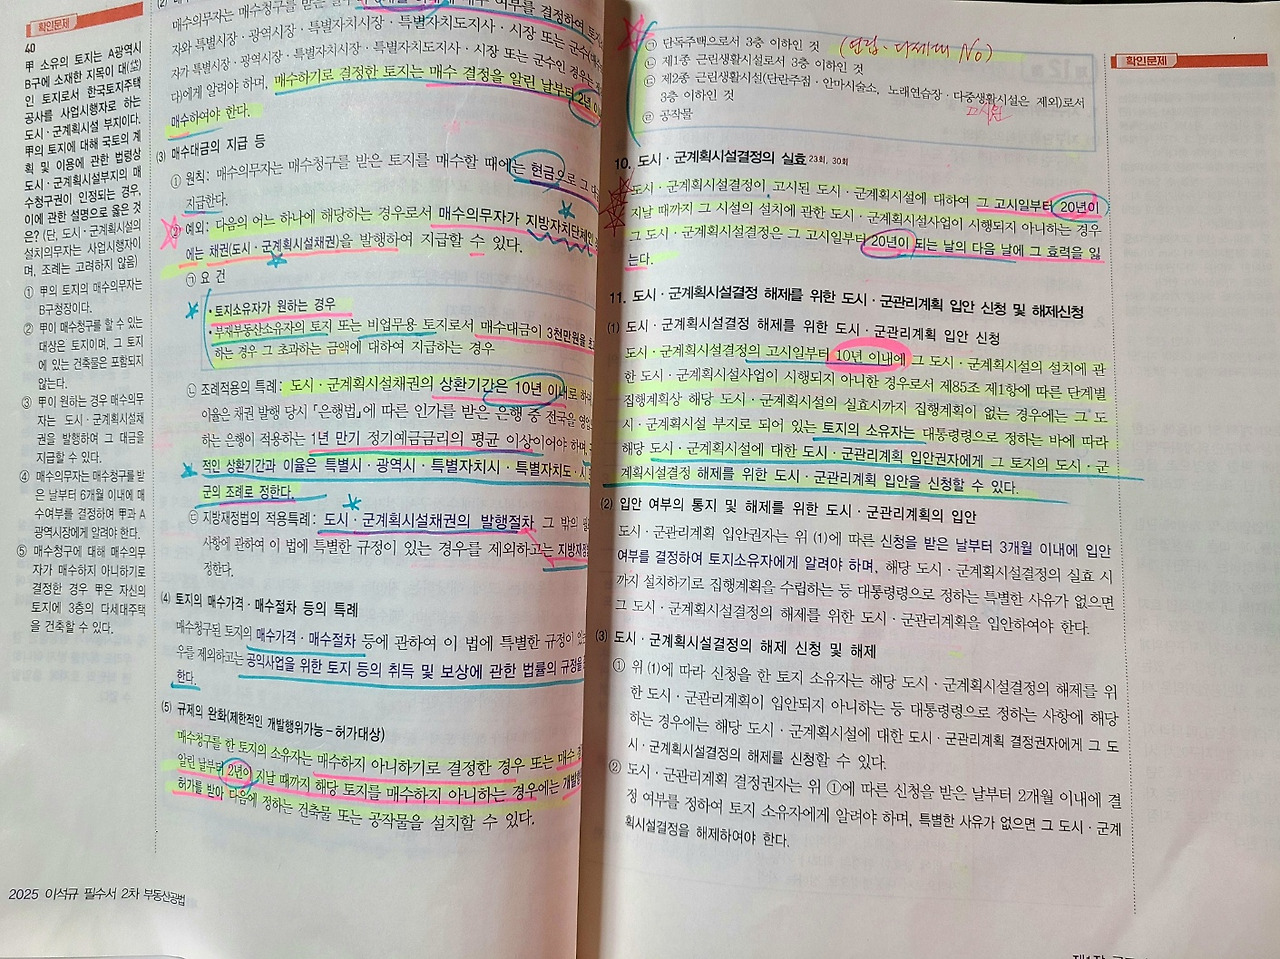 확인문제
40
甲 소유의 토지는 A광역시
B구에 소재한 지목이 대(垈)
인 토지로서 한국토지주택
공사를 사업시행자로 하는
도시·군계획시설 부지이다.
甲의 토지에 대해 국토의 계
획 및 이용에 관한 법령상
도시·군계획시설부지의 매
수청구권이 인정되는 경우,
이에 관한 설명으로 옳은 것
은? (단, 도시·군계획시설의
설치의무자는 사업시행자이
며, 조례는 고려하지 않음)
① 甲의 토지의 매수의무자는
B구청장이다.
② 甲이 매수청구를 할 수 있는
대상은 토지이며, 그 토지
에 있는 건축물은 포함되지
않는다.
③ 甲이 원하는 경우 매수의무
자는 도시·군계획시설채
권을 발행하여 그 대금을
지급할 수 있다.
④ 매수의무자는 매수청구를 받
은 날부터 6개월 이내에 매
수여부를 결정하여 甲과 A
광역시장에게 알려야 한다.
⑤ 매수청구에 대해 매수의무
자가 매수하지 아니하기로
결정한 경우 甲은 자신의
토지에 3층의 다세대주택
을 건축할 수 있다.
매수의무자는 매수청구를 받은 여부를 결정하여
자와 특별시장·광역시장·특별자치시장·특별자치도지사·시장 또는 군수
자가 특별시장·광역시장·특별자치시장·특별자치도지사·시장 또는 군수인 경우는
다)에게 알려야 하며, 매수하기로 결정한 토지는 매수 결정을 알린 날부터 2년
매수하여야 한다.
(3) 매수대금의 지급 등
① 원칙: 매수의무자는 매수청구를 받은 토지를 매수할 때에는 현금으로 그
지급한다.
② 예외: 다음의 어느 하나에 해당하는 경우로서 매수의무자가 지방자치단체인
에는 채권(도시·군계획시설채권)을 발행하여 지급할 수 있다.
㉠ 요 건
• 토지소유자가 원하는 경우
• 부재부동산소유자의 토지 또는 비업무용 토지로서 매수대금이 3천만원을
하는 경우 그 초과하는 금액에 대하여 지급하는 경우
㉡ 조례적용의 특례: 도시·군계획시설채권의 상환기간은 10년 이내로
이율은 채권 발행 당시 「은행법」에 따른 인가를 받은 은행 중 전국을
하는 은행이 적용하는 1년 만기 정기예금금리의 평균 이상이어야 하며,
적인 상환기간과 이율은 특별시·광역시·특별자치시·특별자치도·시
군의 조례로 정한다.
㉢ 지방재정법의 적용특례: 도시·군계획시설채권의 발행절차 그 밖의
사항에 관하여 이 법에 특별한 규정이 있는 경우를 제외하고는 지방재정
정한다.
(4) 토지의 매수가격·매수절차 등의 특례
매수청구된 토지의 매수가격·매수절차 등에 관하여 이 법에 특별한 규정이
우를 제외하고는 공익사업을 위한 토지 등의 취득 및 보상에 관한 법률의 규정을
한다.
(5) 규제의 완화(제한적인 개발행위가능－허가대상)
매수청구를 한 토지의 소유자는 매수하지 아니하기로 결정한 경우 또는 매수
알린 날부터 2년이 지날 때까지 해당 토지를 매수하지 아니하는 경우에는
허가를 받아 다음에 정하는 건축물 또는 공작물을 설치할 수 있다.
2025 이석규 필수서 2차 부동산공법
확인문제
㉠ 단독주택으로서 3층 이하인 것 (연립·다세대 No)
㉡ 제1종 근린생활시설로서 3층 이하인 것
㉢ 제2종 근린생활시설(단란주점·안마시술소, 노래연습장·다중생활시설은 제외)로서
3층 이하인 것 고시원
㉣ 공작물
10. 도시·군계획시설결정의 실효 23회, 30회
도시·군계획시설결정이 고시된 도시·군계획시설에 대하여 그 고시일부터 20년이
지날 때까지 그 시설의 설치에 관한 도시·군계획시설사업이 시행되지 아니하는 경우
그 도시·군계획시설결정은 그 고시일부터 20년이 되는 날의 다음 날에 그 효력을 잃
는다.
11. 도시·군계획시설결정 해제를 위한 도시·군관리계획 입안 신청 및 해제신청
(1) 도시·군계획시설결정 해제를 위한 도시·군관리계획 입안 신청
도시·군계획시설결정의 고시일부터 10년 이내에 그 도시·군계획시설의 설치에 관
한 도시·군계획시설사업이 시행되지 아니한 경우로서 제85조 제1항에 따른 단계별
집행계획상 해당 도시·군계획시설의 실효시까지 집행계획이 없는 경우에는 그 도
시·군계획시설 부지로 되어 있는 토지의 소유자는 대통령령으로 정하는 바에 따라
해당 도시·군계획시설에 대한 도시·군관리계획 입안권자에게 그 토지의 도시·군
계획시설결정 해제를 위한 도시·군관리계획 입안을 신청할 수 있다.
(2) 입안 여부의 통지 및 해제를 위한 도시·군관리계획의 입안
도시·군관리계획 입안권자는 위 (1)에 따른 신청을 받은 날부터 3개월 이내에 입안
여부를 결정하여 토지소유자에게 알려야 하며, 해당 도시·군계획시설결정의 실효 시
까지 설치하기로 집행계획을 수립하는 등 대통령령으로 정하는 특별한 사유가 없으면
그 도시·군계획시설결정의 해제를 위한 도시·군관리계획을 입안하여야 한다.
(3) 도시·군계획시설결정의 해제 신청 및 해제
① 위 (1)에 따라 신청을 한 토지 소유자는 해당 도시·군계획시설결정의 해제를 위
한 도시·군관리계획이 입안되지 아니하는 등 대통령령으로 정하는 사항에 해당
하는 경우에는 해당 도시·군계획시설에 대한 도시·군관리계획 결정권자에게 그 도
시·군계획시설결정의 해제를 신청할 수 있다.
② 도시·군관리계획 결정권자는 위 ①에 따른 신청을 받은 날부터 2개월 이내에 결
정 여부를 정하여 토지 소유자에게 알려야 하며, 특별한 사유가 없으면 그 도시·군계
획시설결정을 해제하여야 한다.